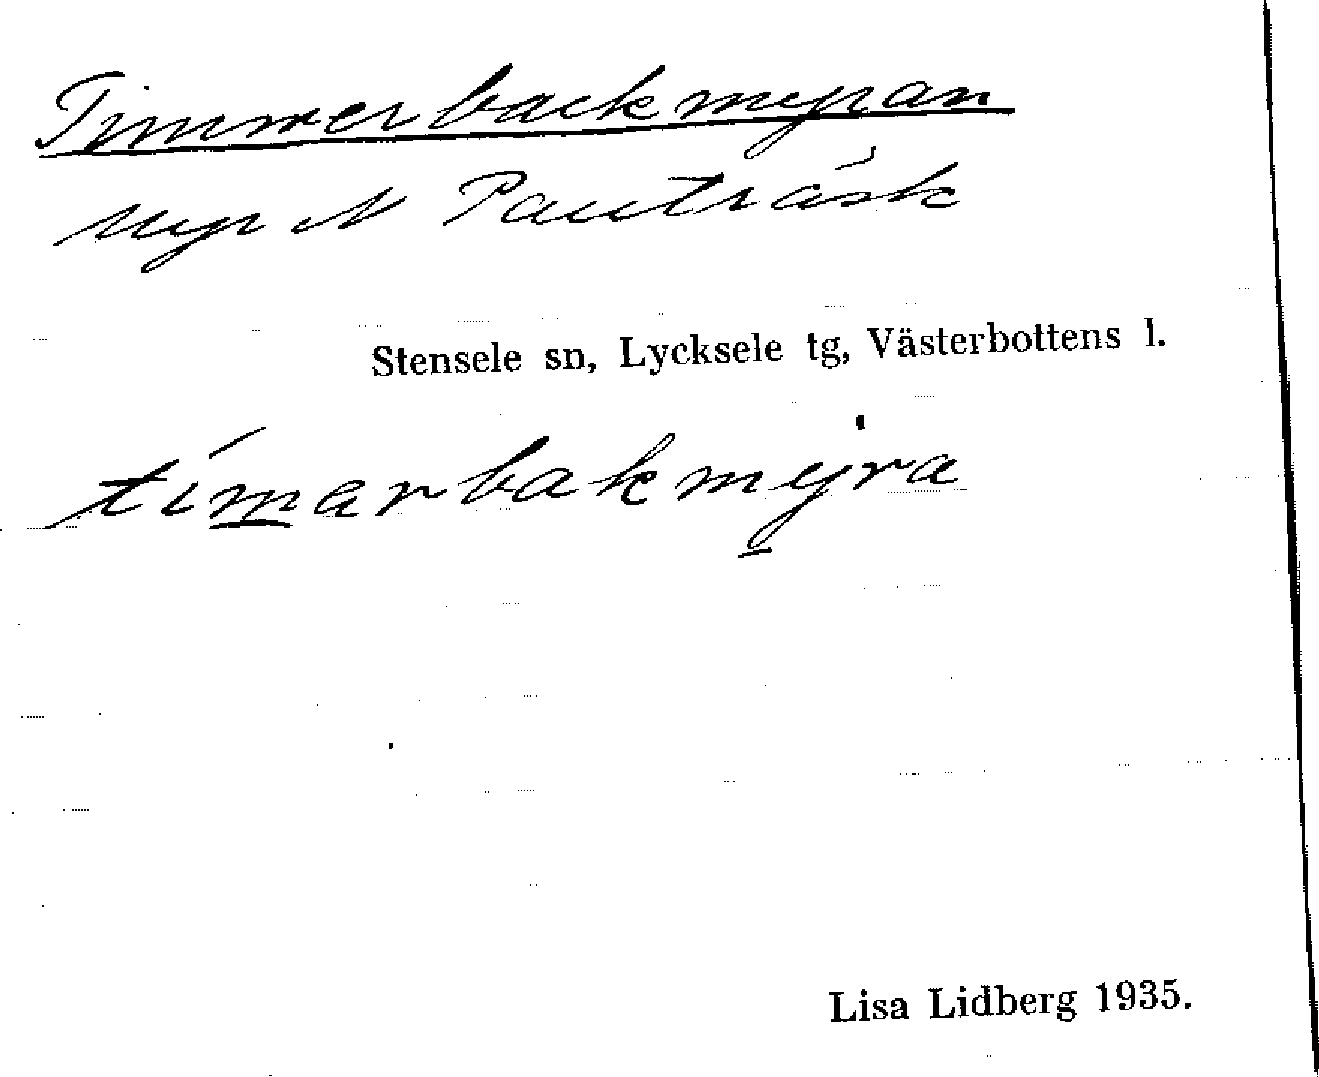 Timmerbackmyran
Myr N Pauträsk
Stensele sn, Lycksele tg, Västerbottens l.
timarbakmyra
Lisa Lidberg 1935.